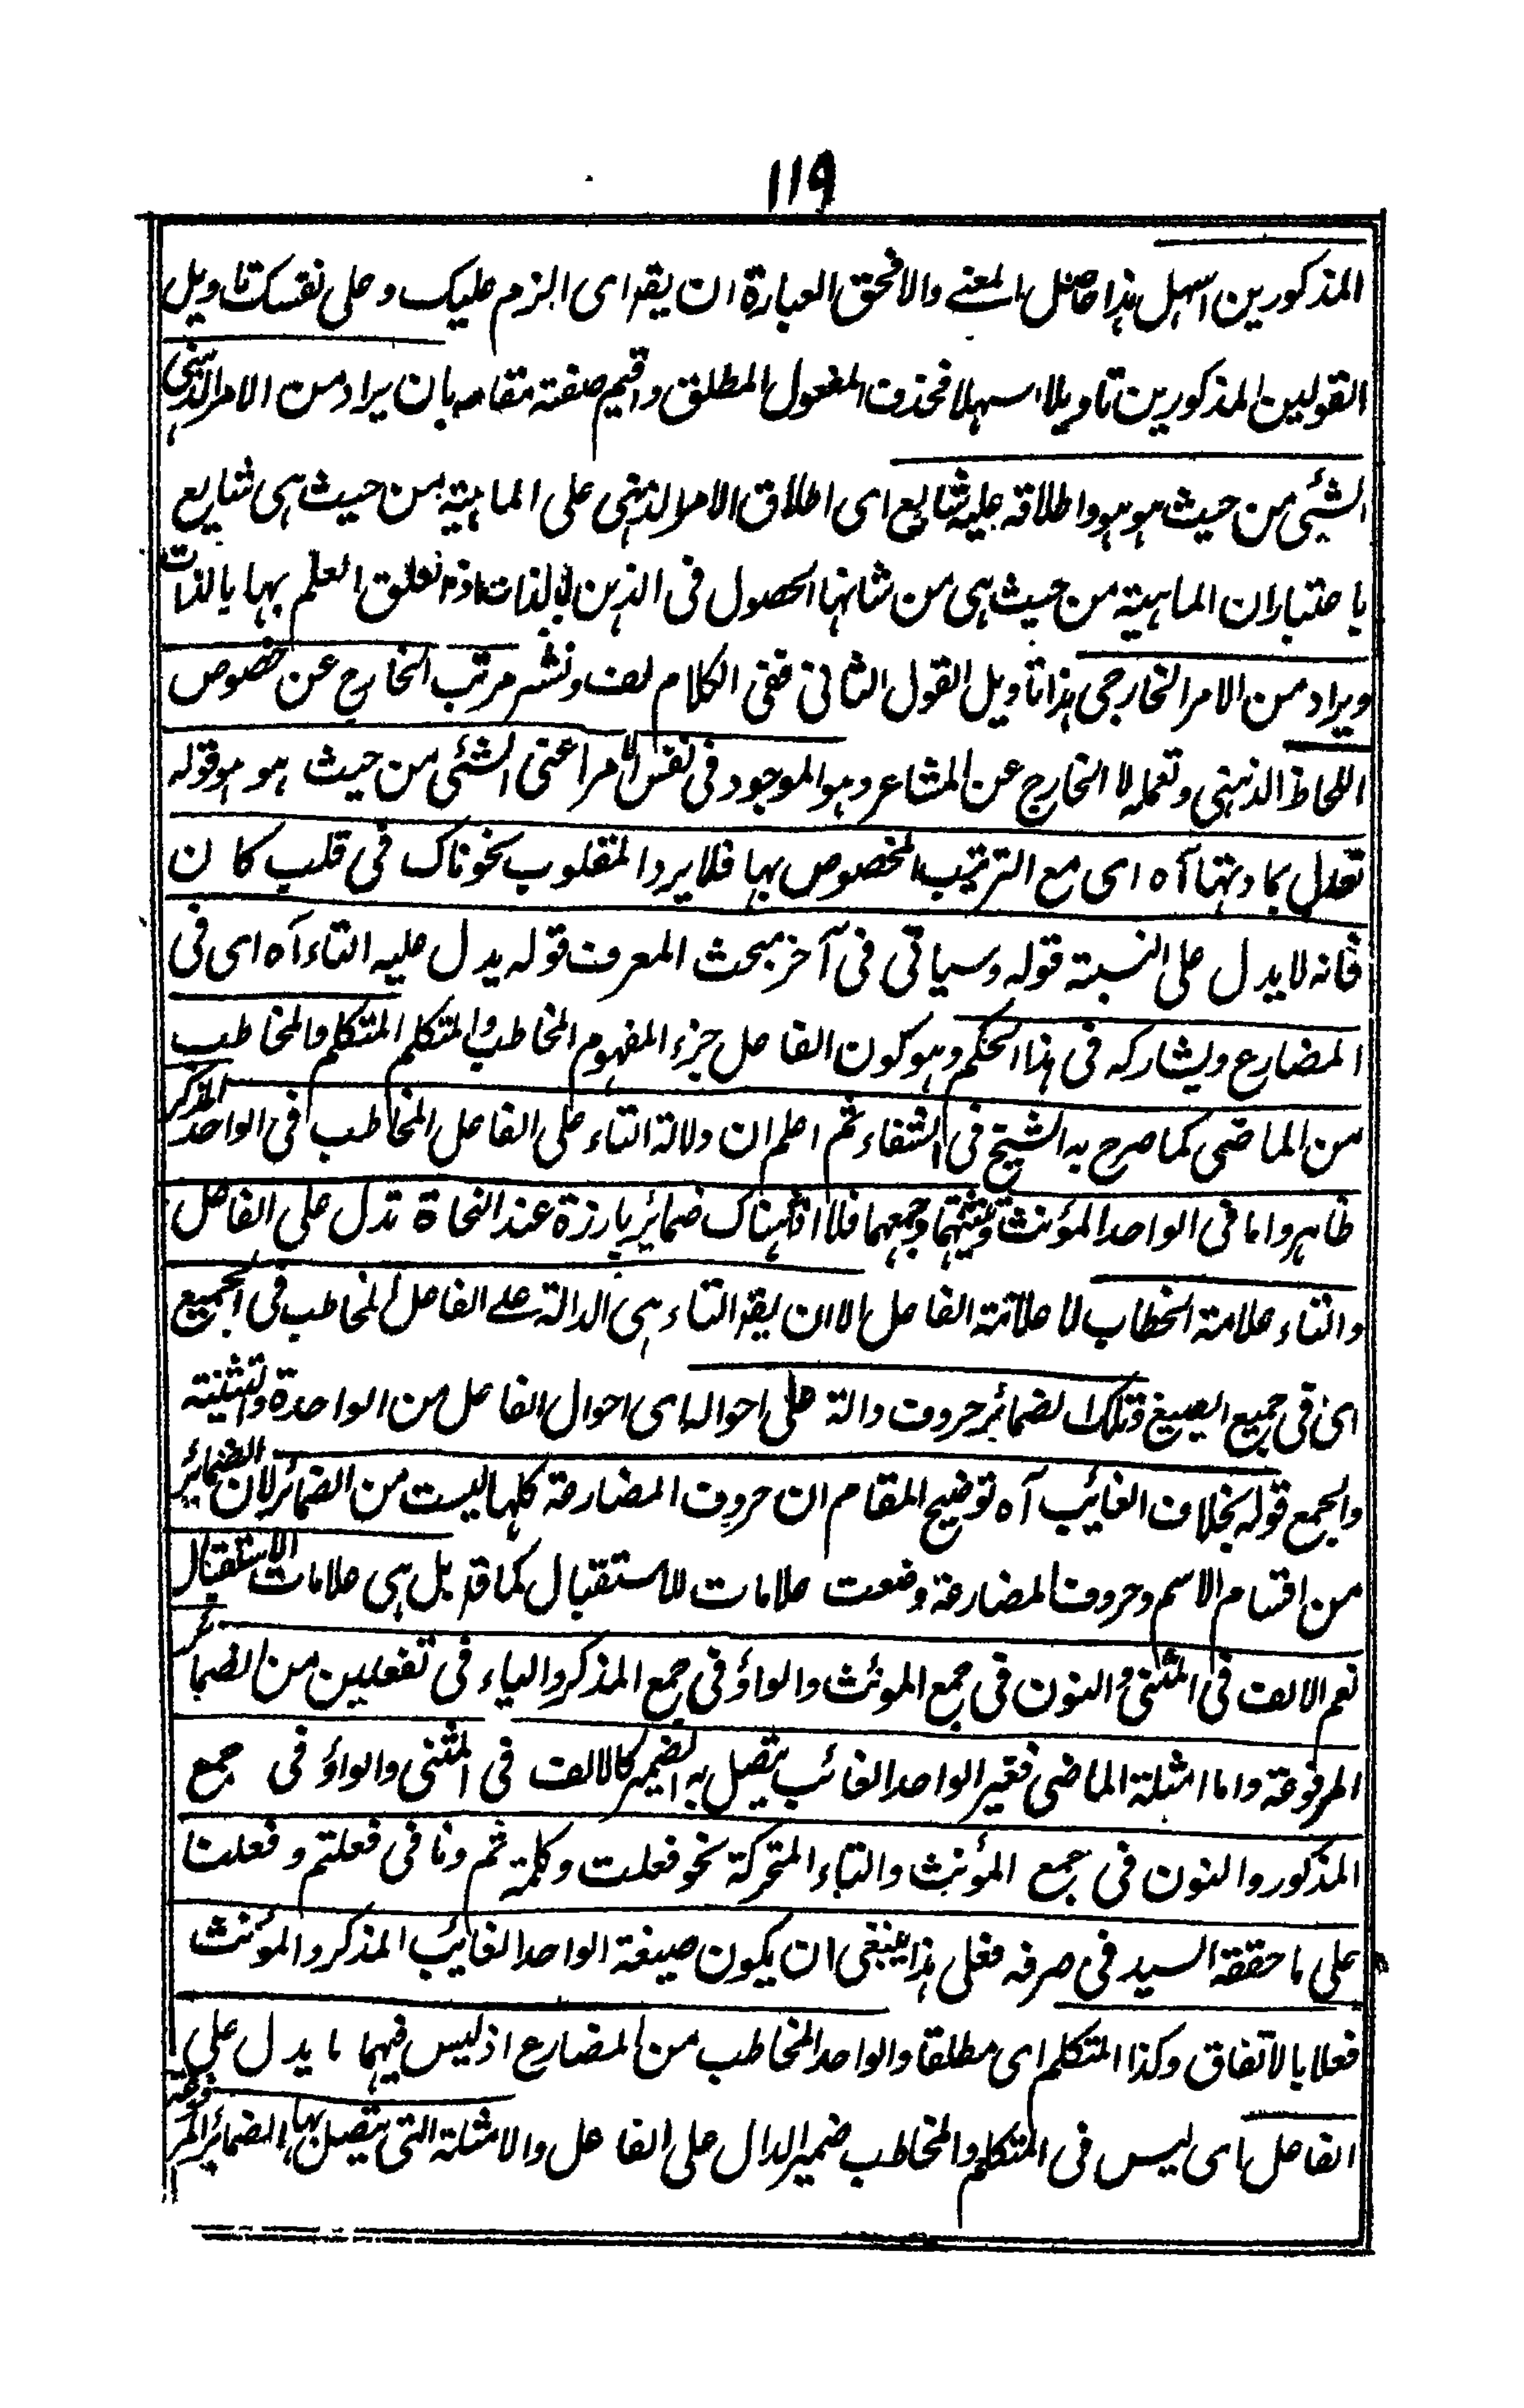 119
المذكورين اسهل هذا حاصل المعنے والا فحق العبارة ان يقم اى الزم عليك وعلى نفسك تاويل
القولين المذكورين تاويلا اسهلا فحذف المفعول المطلق واقيم صفته مقامه بان يراد من الامر الذهنى
الشئى من حيث هو هو واطلاقه عليه شايع اى اطلاق الامر الذهنى على الماهية من حيث هى شايع
باعتباران الماهية من حيث هى من شانها الحصول فى الذهن بالذات اذ تعلق العلم بها بالذات
ويراد من الامر الخارجى هذا تاويل القول الثانى ففى الكلام لف ونشر مرتب الخارج عن خصوص
اللحاظ الذهنى وتعمله لا الخارج عن المشاعر وهو الموجود فى نفس الامر اعنى الشئى من حيث هو هو قوله
تدل بمادتها آه اى مع الترتيب المخصوص بها فلا يرد المقلوب نحو ناك فى قلب كان
فانه لا يدل على النسبة قوله وسياتى فى آخر مبحث المعرف قوله يدل عليه التاء آه اى فى
المضارع ويشاركه فى هذا الحكم وهو كون الفاعل جزء المفهوم المخاطب والمتكلم المتكلم والمخاطب
من الماضى كما صرح به الشيخ فى الشفاء ثم اعلم ان دلالة التاء على الفاعل المخاطب فى الواحد المذكر
ظاهر واما فى الواحد المؤنث وتثنيتهما وجمعهما فلا اذ هناك ضمائر بارزة عند النحاة تدل على الفاعل
والتاء علامة الخطاب لا علامة الفاعل الا ان يقم التاء هى الدالة علے الفاعل المخاطب فى الجميع
اى فى جميع الصيغ وتلك الضمائر حروف دالة على احواله اى احوال الفاعل من الواحدة والتثنية
والجمع قوله بخلاف الغائب آه توضيح المقام ان حروف المضارعة كلها ليست من الضمائر لان الضمائر
من اقسام الاسم وحروف المضارعة وضعت علامات للاستقبال كما قد بل هى علامات الاستقبال
نعم الالف فى المثنى والنون فى جمع المونث والواؤ فى جمع المذكر والياء فى تفعلين من الضمائر
المرفوعة واما امثلة الماضى فغير الواحد الغائب يتصل به الضمير كالالف فى المثنى والواؤ فى جمع
المذكور والنون فى جمع المؤنث والتاء المتحركة نحو فعلت وكلمة تم ونا فى فعلتم و فعلنا
على ما حققه السيد فى صرفه فعلى هذا ينبغى ان يكون صيغة الواحد الغايب المذكر والمؤنث
فعلا بالاتفاق وكذا المتكلم اى مطلقا والواحد المخاطب من المضارع اذ ليس فيهما ما يدل على
الفاعل اى ليس فى المتكلم والمخاطب ضمير الدال على الفاعل والامثلة التى يتصل بها الضمائر المرفوعة